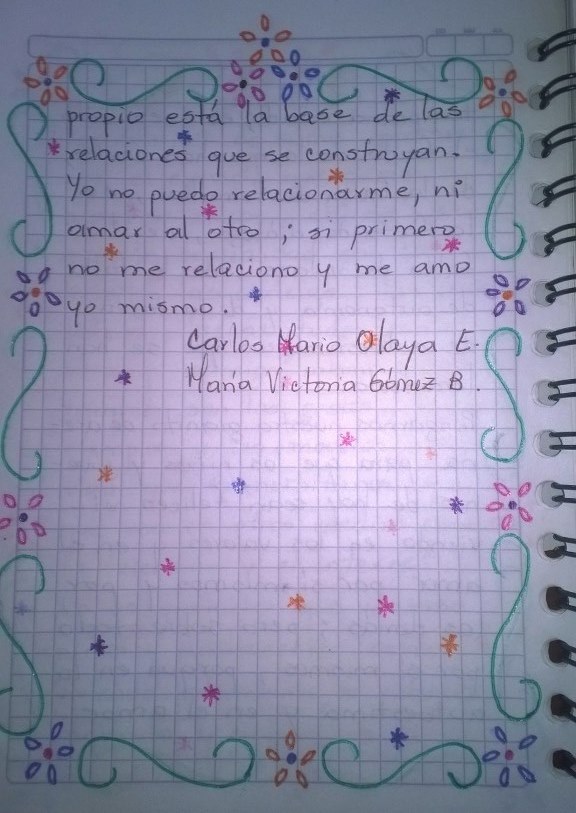 propio está la base de las
relaciones que se construyan.
Yo no puedo relacionarme, ni
amar al otro; si primero
no me relaciono y me amo
yo mismo.
Carlos Mario Olaya E.
María Victoria Gómez B.